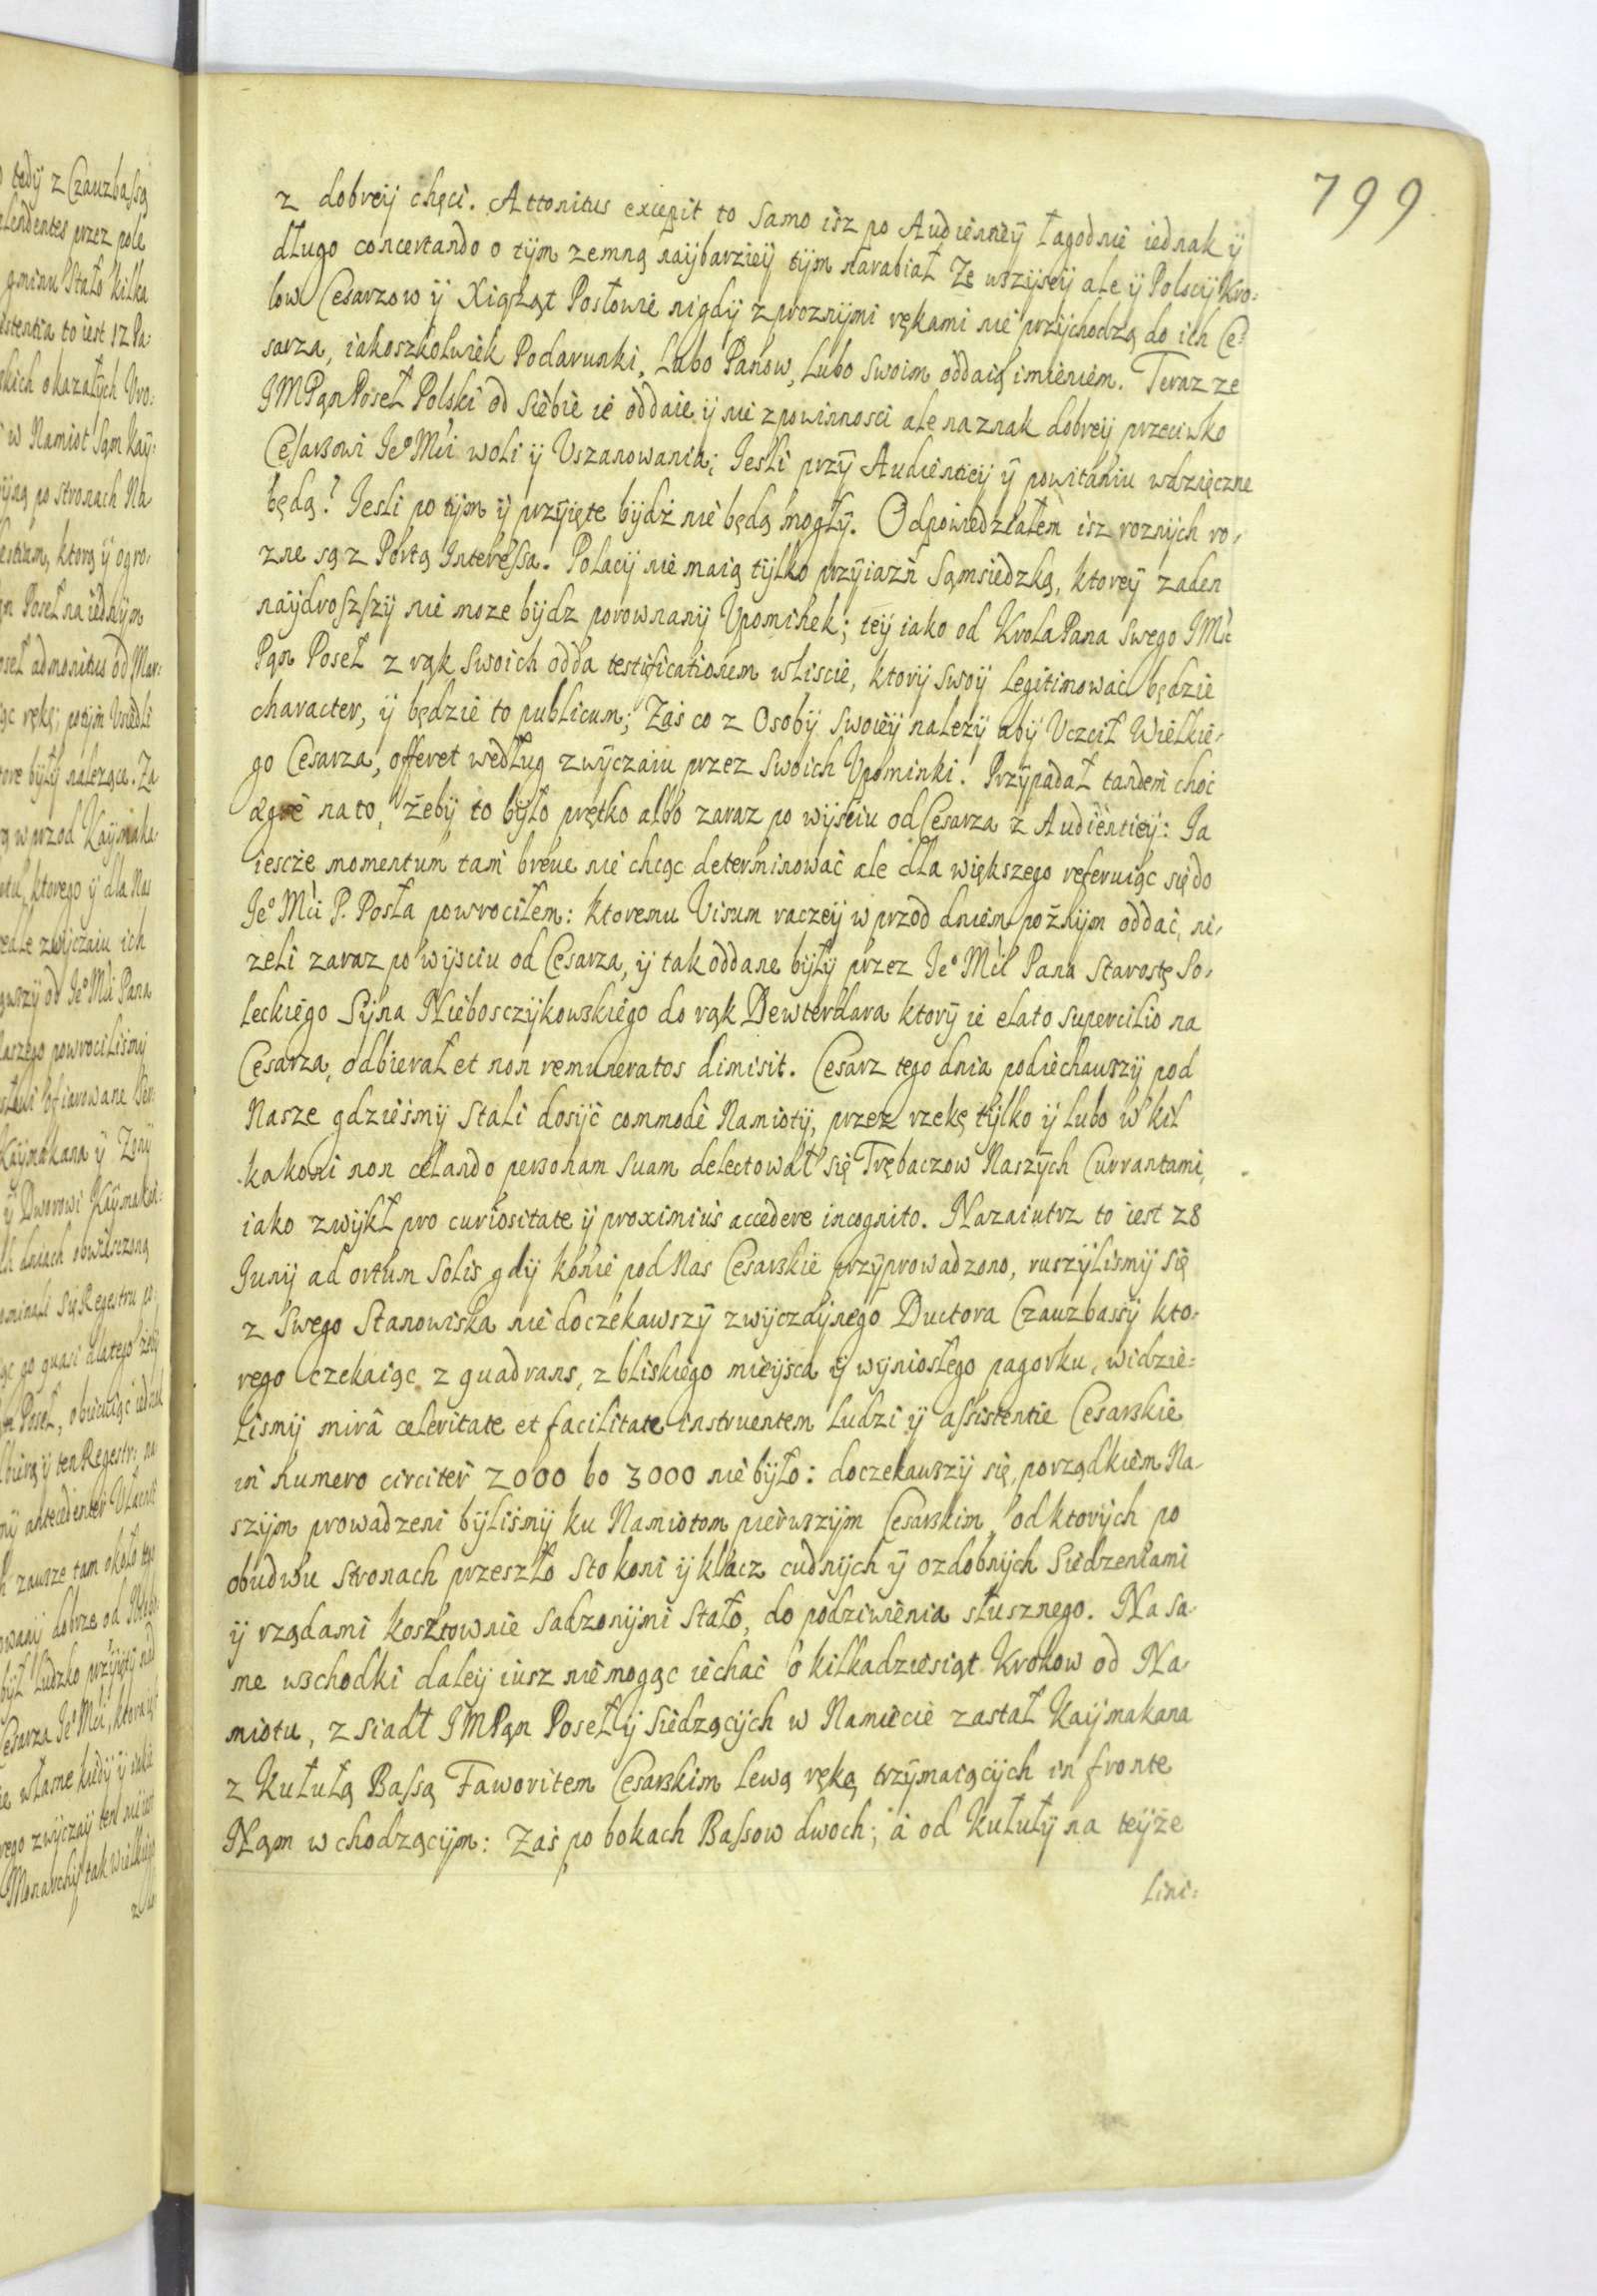 799
z dobreÿ chęci. Attonitus excepit to samo isz po Audientiÿ łagodnie iednak ÿ
długo concertando o tÿm zemną naÿbarzieÿ tÿm narabiał Ze wszÿscÿ ale ÿ Polscÿ Kro-
low Cesarzow ÿ Xiążąt Posłowie nigdÿ z proznÿmi rękami nie przÿchodzą do ich Ce-
sarza, iakoszkolwiek Podarunki, Lubo Panow, Lubo swoim oddaią imieniem. Teraz ze
JMPąn Poseł Polski od siebie ie oddaie ÿ nie z powinnosci ale na znak dobreÿ przeciwko
Cesarzowi Jeº Mći woli ÿ Vszanowania; Jesli przÿ Audientieÿ ÿ powitaniu wdzięczne
będą? Jesli po tÿm ÿ przÿięte bÿdź nie będą mogłÿ. Odpowiedziałem isz roznÿch ro-
zne są z Portą Interessa. Polacÿ nie maią tÿlko przÿiazń Sąmsiedzką, ktoreÿ zaden
naÿdroszszÿ nie moze bÿdz porownanÿ Vpominek; teÿ iako od Krola Pana swego JMć
Pąn Poseł z rąk swoich odda testificationem w liscie, ktorÿ swoÿ Legitimowac będzie
character, ÿ będzie to publicum; Zaś co z Osobÿ swoieÿ nalezÿ abÿ Vczcił Wielkie-
go Cesarza, offeret według zwÿczaiu przez swoich Vpominki. Przÿpadał tandem choć
ægre na to, żebÿ to bÿło prętko albo zaraz po wÿsciu od Cesarza z Audientieÿ: Ja
iescze momentum tam breue nie chcąc determinować ale dla większego referuiąc się do
Jeº Mći P. Posła powrociłem: ktoremu Visum raczeÿ w przod dniem poznÿm oddać, ni-
zeli zaraz po wÿsciu od Cesarza, ÿ tak oddane bÿłÿ przez Jeº Mći Pana Starostę So-
leckiego Sÿna Niebosczÿkowskiego do rąk Dewterdara ktorÿ ie elato supercilio na
Cesarza, odbierał et non remuneratos dimisit. Cesarz tego dnia podiechawszÿ pod
Nasze gdziesmÿ stali dosÿć commodè Namiotÿ, przez rzekę tÿlko ÿ lubo w kil
ka koni non celando personam suam delectował się Trębaczow Naszÿch Currantami,
iako zwÿkł pro curiositate ÿ proximius accedere incognito. Nazaiutrz to iest 28
Junij ad ortum Solis gdÿ konie pod Nas Cesarskie przÿprowadzono, ruszÿlismÿ się
z Swego Stanowiska nie doczekawszÿ zwÿczaÿnego Ductora Czauzbassÿ kto-
rego czekaiąc z quadrans, z bliskiego mieÿsca ÿ wÿniosłego pagorku, widzie-
lismÿ mirâ celeritate et facilitate instruentem Ludzi ÿ assistentie Cesarskie
in numero circiter 2000 bo 3000 nie bÿło: doczekawszÿ się, porządkiem Na-
szÿm prowadzeni bÿlismÿ ku Namiotom pierwszÿm Cesarskim, od ktorÿch po
obudwu stronach przeszło sto koni ÿ klacz cudnÿch ÿ ozdobnÿch Siedzeniami
ÿ rządami kosztownie sadzonÿmi stało, do podziwienia słusznego. Na sa-
me wschodki daleÿ iusz nie mogąc iechać o kilkadziesiąt Krokow od Na-
miotu, z siadł JMPąn Poseł ÿ siedzącÿch w Namiecie zastał Kaÿmakana
z Kułułą Bassą Faworitem Cesarskim lewą ręką trzÿmaiącÿch in fronte
Nąm wchodzącÿm: Zaś po bokach Bassow dwoch; à od Kułułÿ na teÿże
Lini-